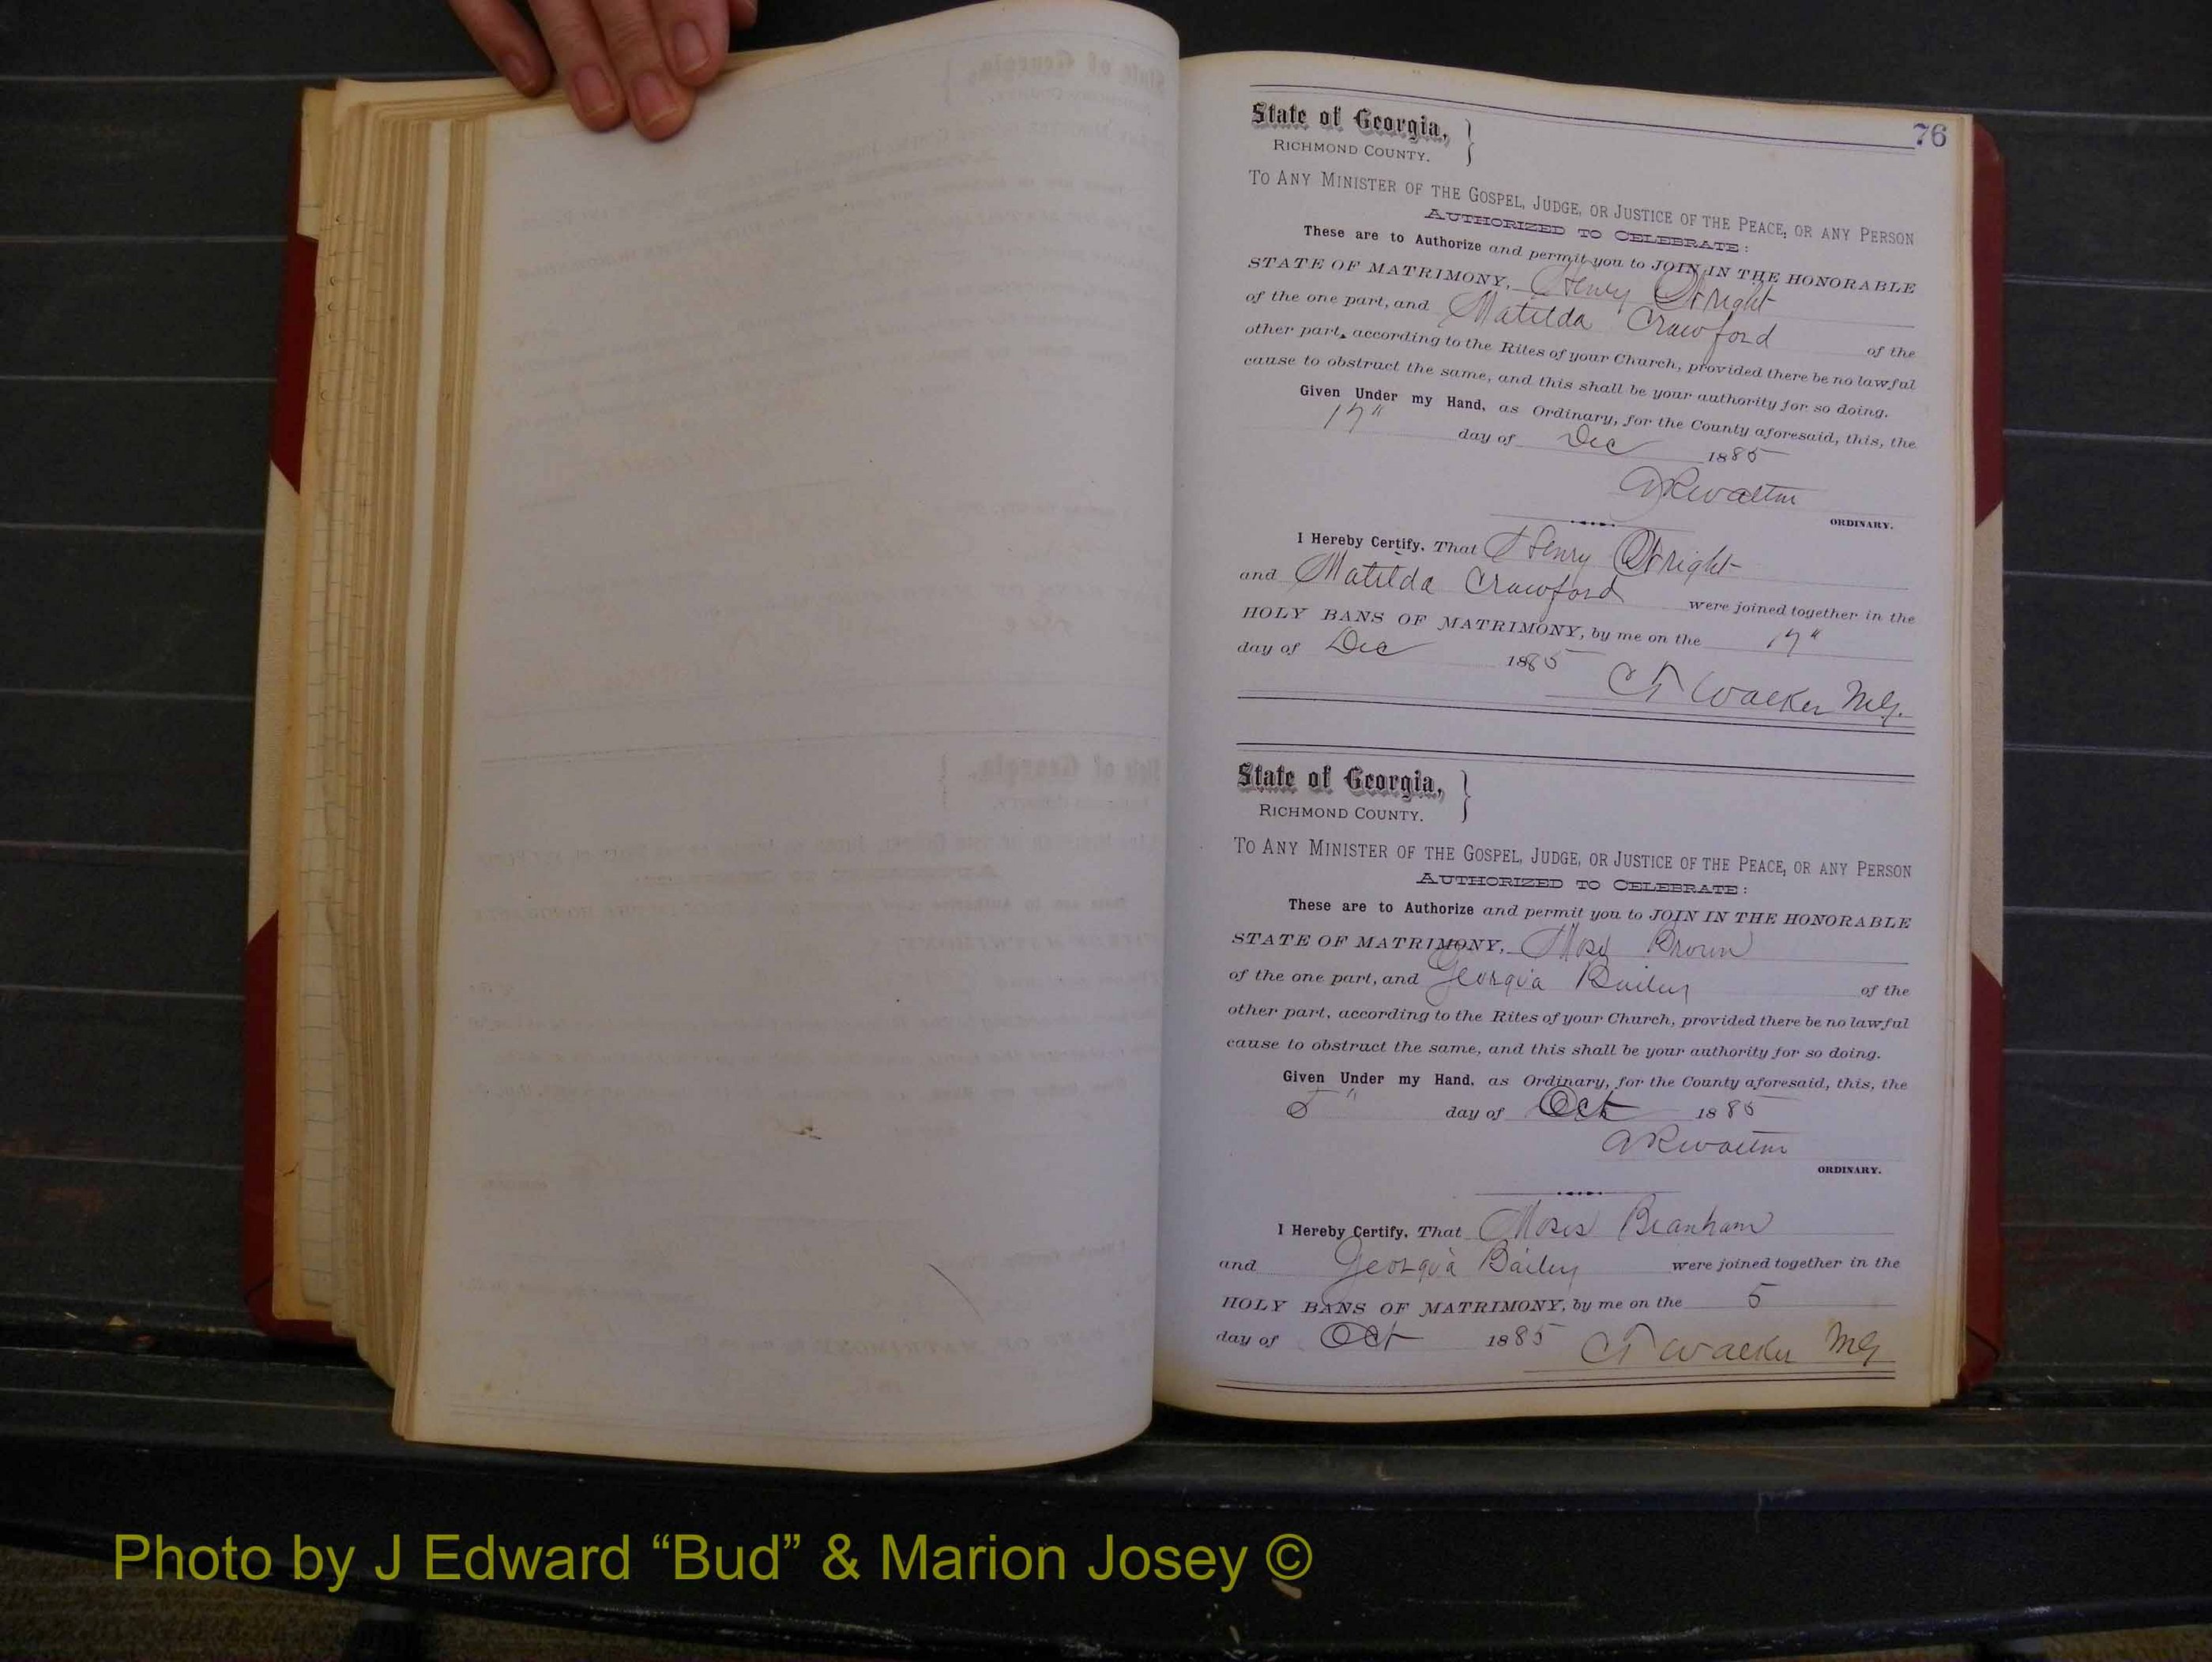 76
State of Georgia,
RICHMOND COUNTY.
TO ANY MINISTER OF THE GOSPEL, JUDGE, OR JUSTICE OF THE PEACE, OR ANY PERSON
AUTHORIZED TO CELEBRATE:
These are to Authorize and permit you to JOIN IN THE HONORABLE
STATE OF MATRIMONY, Henry Wright
of the one part, and Matilda Crawford of the
other part, according to the Rites of your Church, provided there be no lawful
cause to obstruct the same, and this shall be your authority for so doing.
Given Under my Hand, as Ordinary, for the County aforesaid, this, the
17" day of Dec 1885
A R Walton
ORDINARY.
I Hereby Certify, That Henry Wright
and Matilda Crawford were joined together in the
HOLY BANS OF MATRIMONY, by me on the 17"
day of Dec 1885
C T Walker M.G.
State of Georgia,
RICHMOND COUNTY.
TO ANY MINISTER OF THE GOSPEL, JUDGE, OR JUSTICE OF THE PEACE, OR ANY PERSON
AUTHORIZED TO CELEBRATE:
These are to Authorize and permit you to JOIN IN THE HONORABLE
STATE OF MATRIMONY, Brown
of the one part, and Georgia Bailey of the
other part, according to the Rites of your Church, provided there be no lawful
cause to obstruct the same, and this shall be your authority for so doing.
Given Under my Hand, as Ordinary, for the County aforesaid, this, the
5" day of Oct 1885
A R Walton
ORDINARY.
I Hereby Certify, That Moses Branham
and Georgia Bailey were joined together in the
HOLY BANS OF MATRIMONY, by me on the 5
day of Oct 1885 C T Walker MG
Photo by J Edward “Bud” & Marion Josey ©